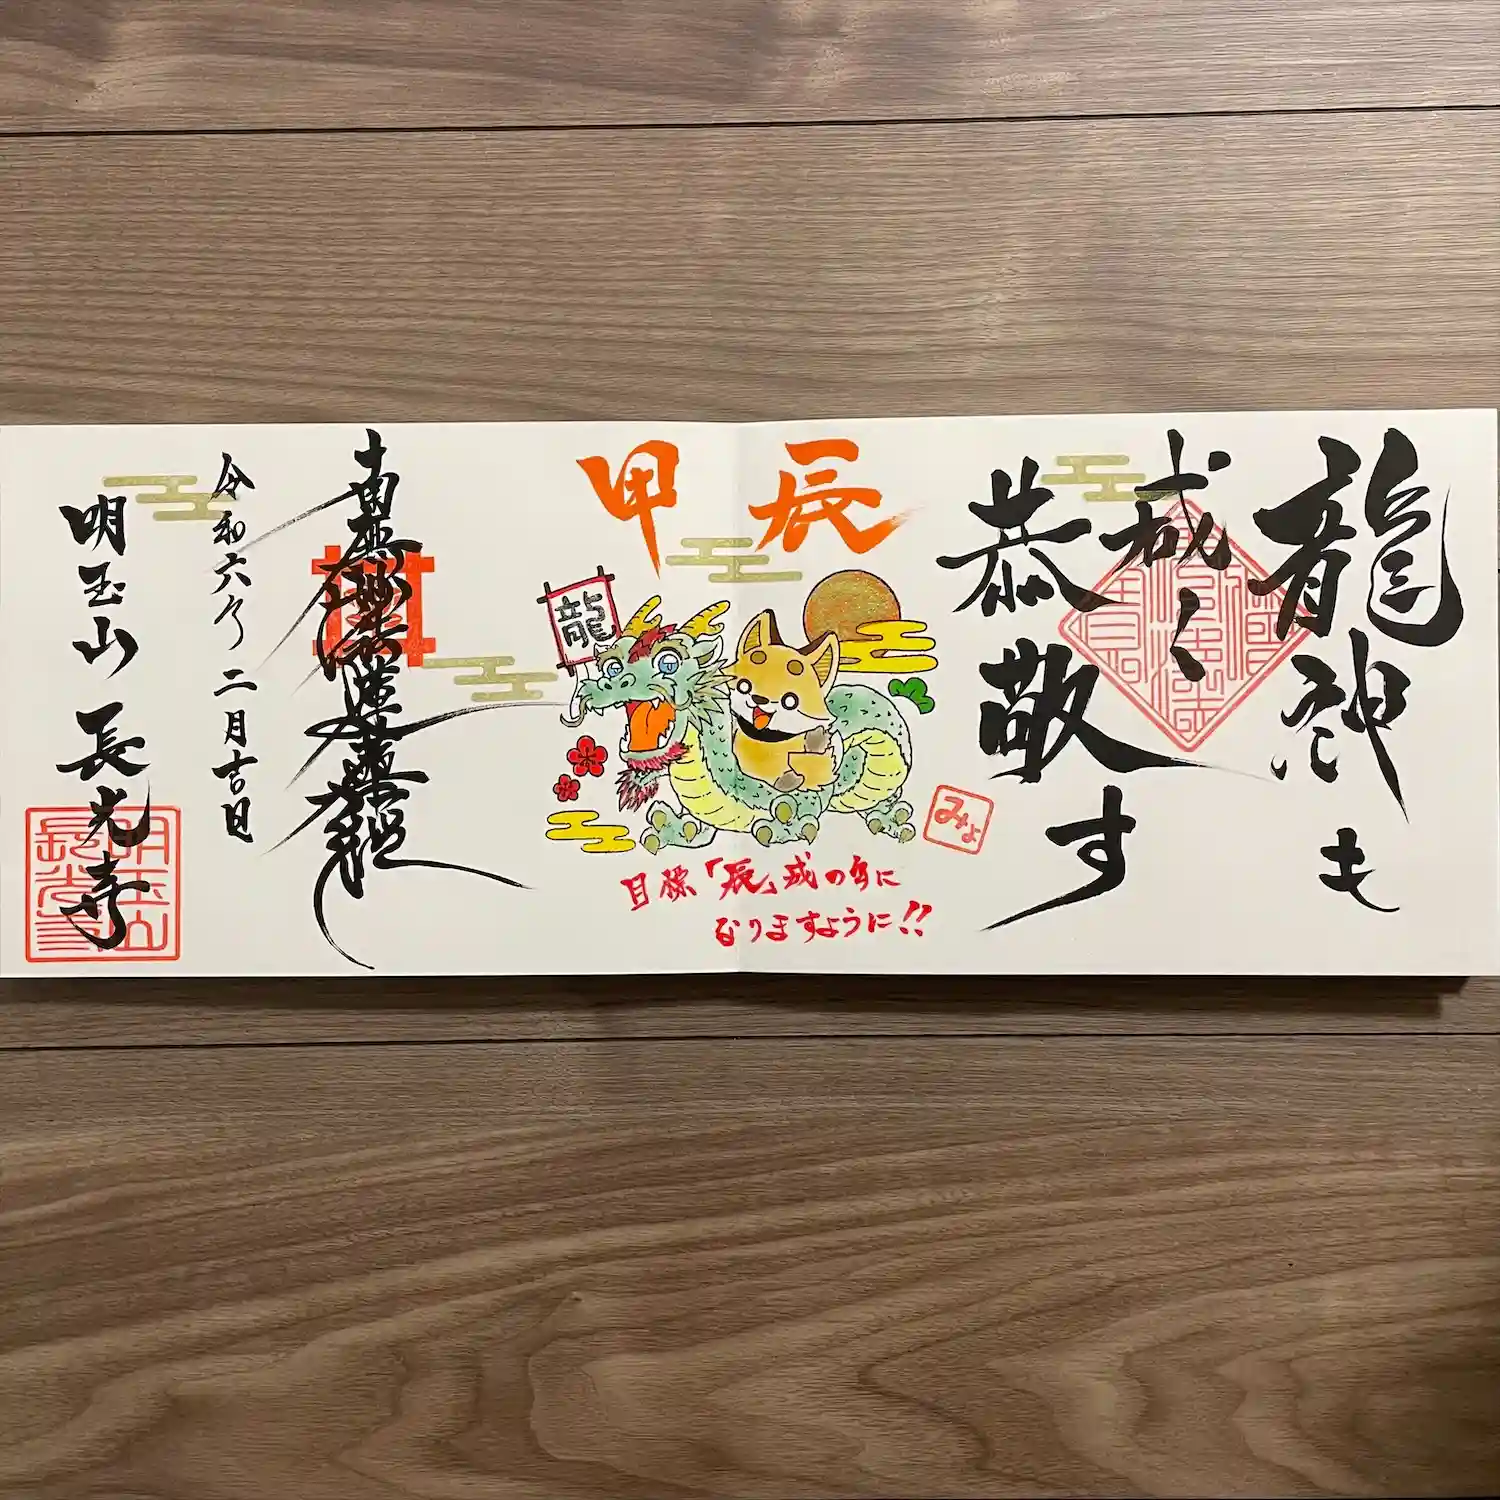 龍神も
咸く
恭敬す
甲辰
龍
目標「辰」成の年に
なりますように!!
みょ
南無妙法蓮華経
令和六年二月吉日
明玉山 長光寺
明玉山
長光寺